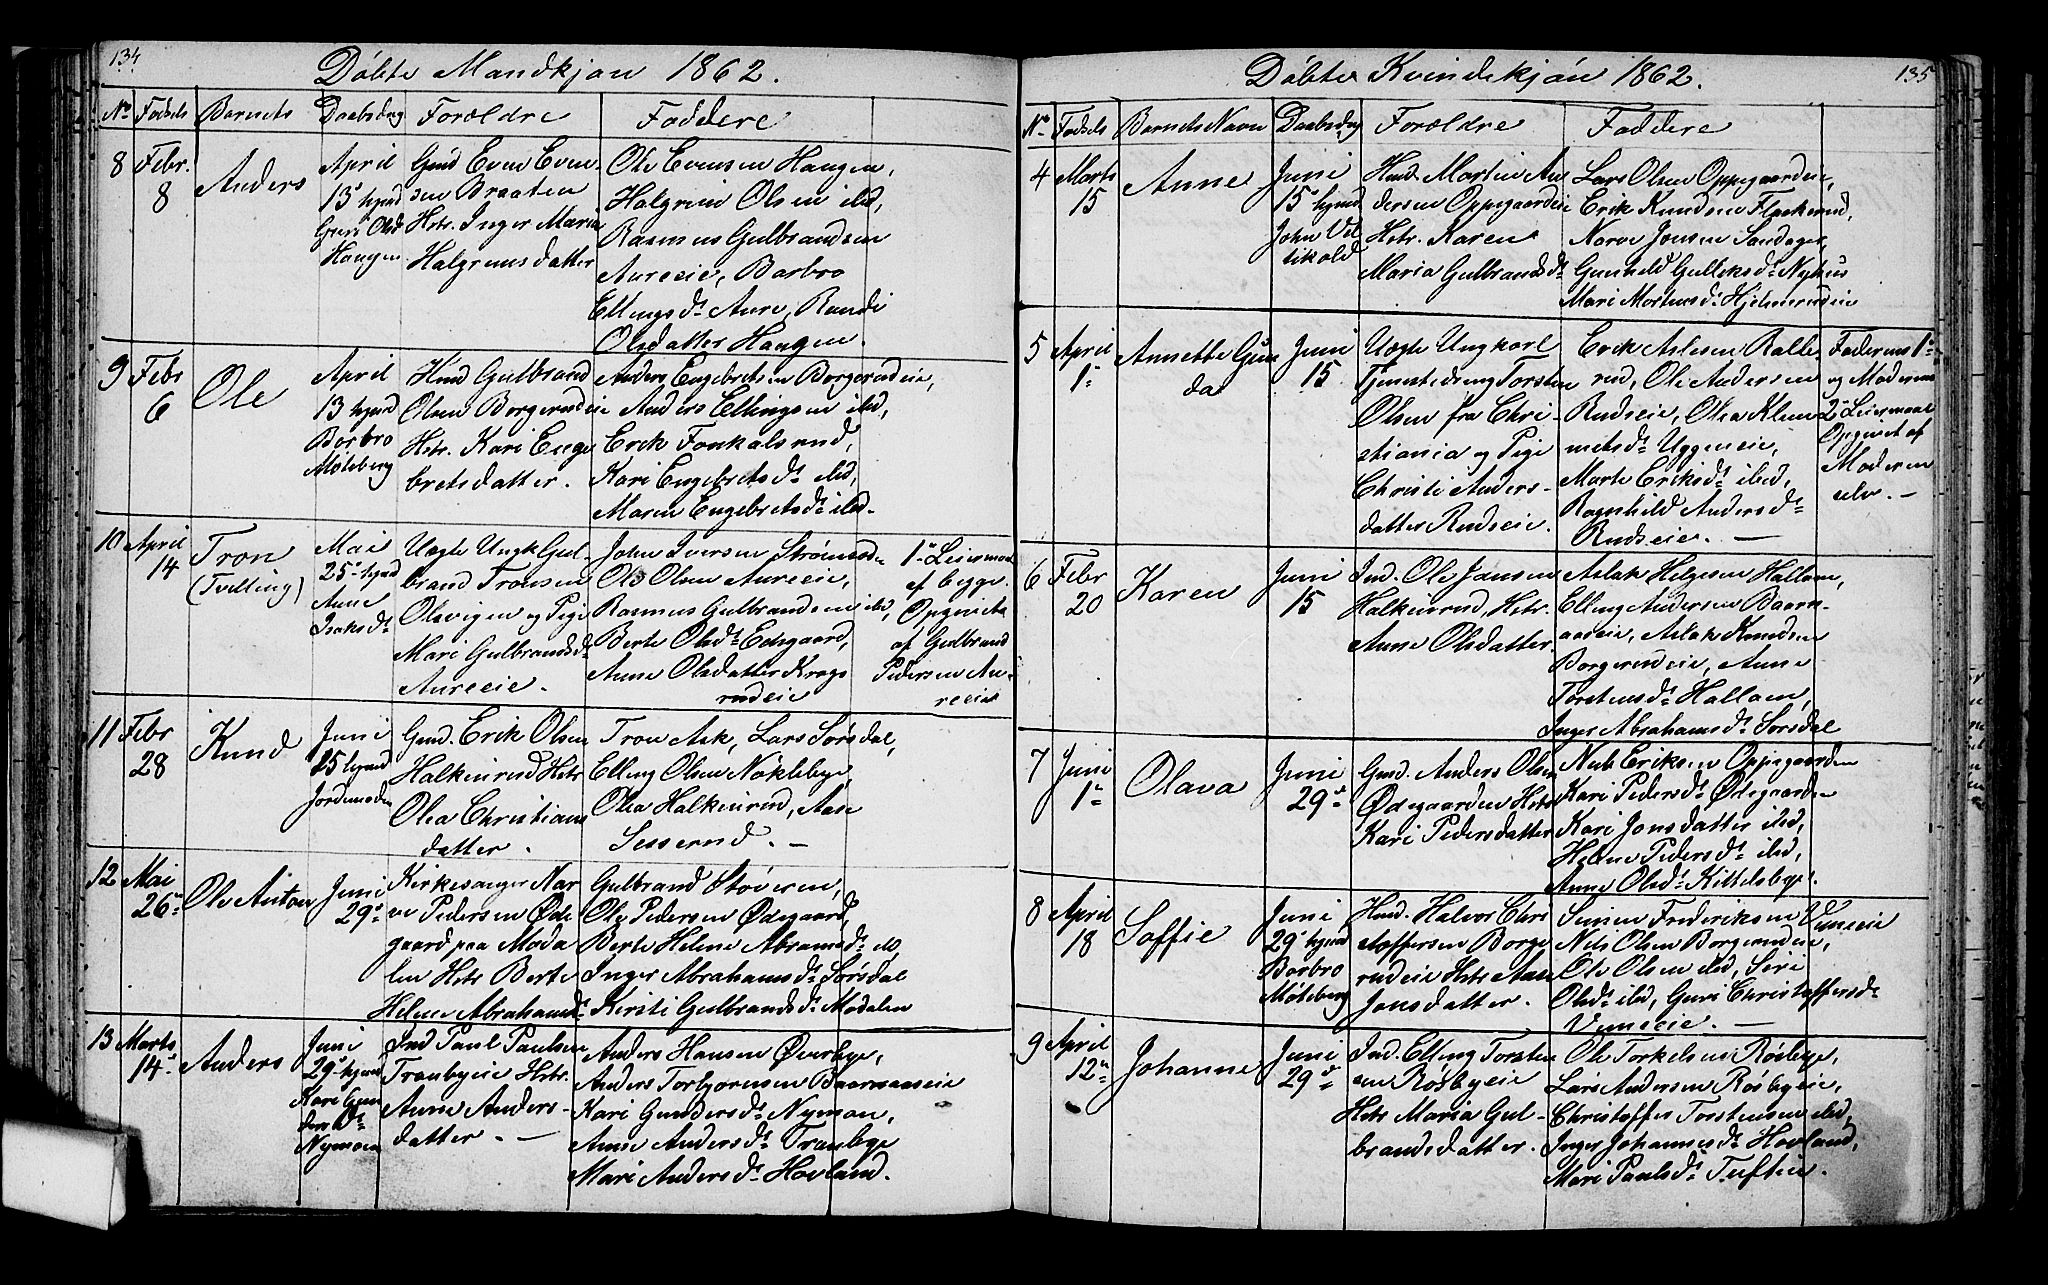 134
Döbte Mandkjön 1862.
No Fødsels Barnets Daabsdag Forældre Faddere
8 Febr. 8
Anders
April
13de hjmd
Guri Olsd
Haugen
Gmd Even Even-
sen Braaten
Hstr. Inger Maria
Halgrimsdatter
Ole Evensen Haugen,
Halgrim Olsen ibd,
Rasmus Gulbrandsen
Aureeie, Barbro
Ellingsdr Aure, Randi
Olsdatter Haugen.
9 Febr 6
Ole
April
13 hjmd
Barbro
Møteberg
Hmd Gulbrand
Olsen Borgerudeie
Hstr. Kari Enge
bretsdatter.
Anders Engebretsen Borgerudeie,
Anders Ellingsen ibd,
Erik Fonkalsrud,
Kari Engebretsdr ibd,
Maren Engebretsdr ibd.
10 April 14
Tron
(Tvilling)
Mai
25de hjmd
Anne
Isaksdr
Uægte Ungk Gul-
brand Tronsen
Olsvigen og Pige
Mari Gulbrandsdr
Aureeie.
John Iversen
Ole Olsen Aureeie,
Rasmus Gulbrandsen ibd,
Berte Olsdr Edsgaard,
Anne Olsdatter Krags
rudeie
1ste Leiermaal
af begge.
Opgivet
af Gulbrand
Pedersen Au-
reeie
11 Febr 28
Knud
Juni
15 hjmd
Jordemoder
Gmd. Erik Olsen
Halkinrud Hstr
Olea Christians
datter.
Tron Ask, Lars Sørsdal,
Elling Olsen Nøklebye,
Olea Halkinrud, Aase
Sesserud. —
12 Mai 26de
Ole Anton
Juni
29de
Kirkesanger Nar
ve Pedersen Øde
gaard paa Moda
len Hstr Berte
Helene Abrahamsdr
Gulbrand Støveren,
Ole Pedersen Ødegaard,
Berte Helene Abramsdr
Inger Abrahamsdr Sørsdal
Kirsti Gulbrandsdr Modalen
13 Marts 14de
Anders
Juni
29de hjmd
Kari Gun
dersdr
Nymoen
Ind Paul Paulsen
Tranbyeie Hstr.
Anne Anders-
datter. —
Anders Hansen Øverbye,
Anders Torbjørnsen Baarnaaseie
Kari Gundersdr Nymoen,
Anne Andersdr Tranbye
Mari Andersdr Hovland.
135
Döbte Kvindekjön 1862.
No Fødsels Barnets Navn Daabsdag Forældre Faddere
4 Marts 15
Anne
Juni
15de hjmd
John Vel
tikold
Hmd. Martin An
dersen Oppegaardeie
Hstr. Karen
Maria Gulbrandsdr
Lars Olsen Oppegaardeie,
Erik Knudsen Flaskerud,
Narve Jonsen Sandager,
Gunhild Gulleksdr Nyhus
Mari Mortensdr Hjelmerudeie
5 April 1ste
Annette Gun
da
Juni
15
Uægte Ungkarl
Tjenestedreng Torsten
Olsen fra Chri-
stiania og Pige
Christi Anders-
datter Rudseie.
Erik Aslesen Ralle
rud, Ole Andersen
Rudseie, Olea Klem
metsdr Uggeneie,
Marte Eriksdr ibd,
Ragnhild Andersdr
Rudseie. —
Faderens 1ste
og Moderens
2det Leiermaal
Opgivet af
Moderen
selv. —
6 Febr 20
Karen
Juni
15
Ind. Ole Jansen
Halkinrud, Hstr.
Anne Olsdatter
Aslak Helgesen Hallom,
Elling Andersen Baarn-
aaseie, Aslak Knudsen
Borgerudeie, Anne
Torstensdr Hallom,
Inger Abrahamsdr Sørsdal
7 Juni 1ste
Olava
Juni
29de
Gmd. Anders Olsen
Ødegaarden Hstr
Kari Pedersdatter
Nub Eriksen Oppegaarden
Kari Pedersdr Ødegaarden
Kari Jonsdatter ibd,
Helene Pedersdr ibd,
Anne Olsdr Kittelsbye.
8 April 18
Soffie
Juni
29de hjmd
Barbro
Møteberg
Hmd. Halvor Chri
stoffersen Borge
rudeie Hstr Aase
Jonsdatter.
Simen Frederiksen Vimeeie
Nils Olsen Borgerudeie,
Ole Olsen ibd, Siri
Olsdr ibd, Guri Christoffersdr
Vimeeie. —
9 April 12te
Johanne
Juni
29de
Ind. Elling Torsten
sen Røsbyeie
Hstr Maria Gul-
brandsdatter.
Ole Torkelsen Røsbye,
Lars Andersen Røsbyeie,
Christoffer Torstensen ibd,
Inger Johannesdr Hovland,
Mari Paulsdr Tuftin.